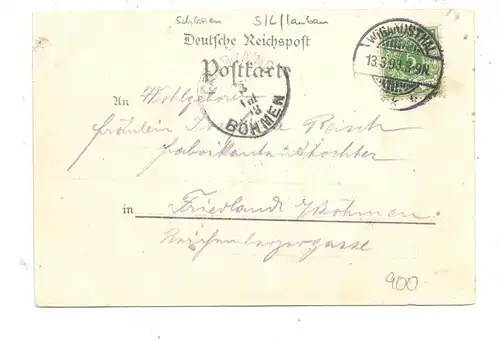 Schlesien S/L/lauban
Deutsche Reichspost
Postkarte
WIGANDSTHAL
13.3.98
BÖHMEN
An Wohlgeboren
Fräulein Reisch
Fabrikantenstochter
in Friedland i/Böhmen
Reichenbergergasse
900